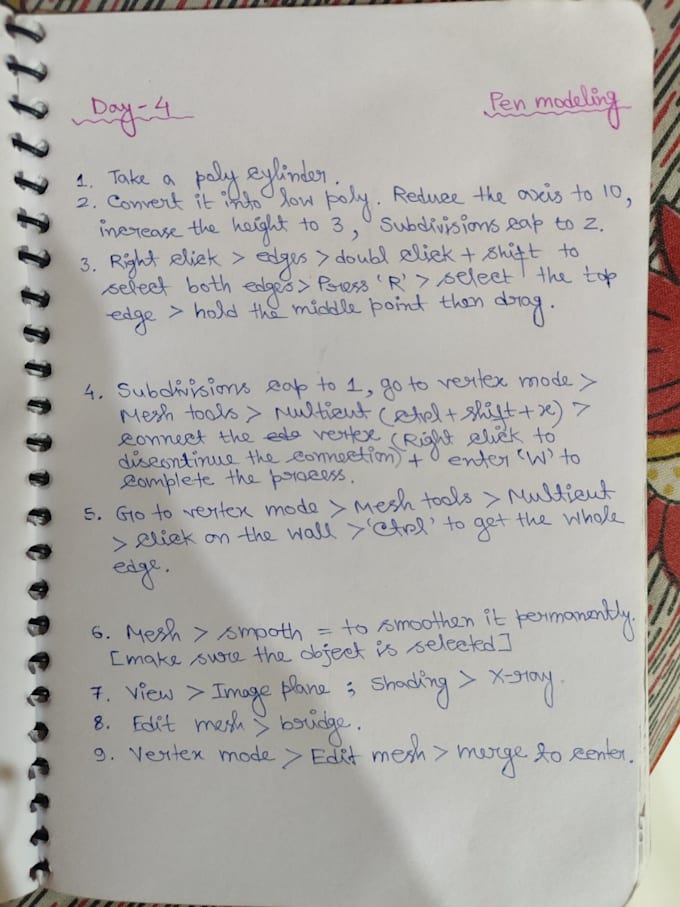 Day-4
Pen modeling
1. Take a poly cylinder.
2. Convert it into low poly. Reduce the axis to 10,
increase the height to 3, Subdivisions cap to 2.
3. Right click > edges > doubl click + shift to
select both edges > Press 'R' > select the top
edge > hold the middle point then drag.
4. Subdivisions cap to 1, go to vertex mode >
Mesh tools > Multicut (ctrl + shift + x) >
connect the vertex (Right click to
discontinue the connection) + enter 'W' to
complete the process.
5. Go to vertex mode > Mesh tools > Multicut
> click on the wall > 'Ctrl' to get the whole
edge.
6. Mesh > smooth = to smoothen it permanently.
[make sure the object is selected]
7. View > Image plane ; Shading > X-ray.
8. Edit mesh > bridge.
9. Vertex mode > Edit mesh > merge to center.